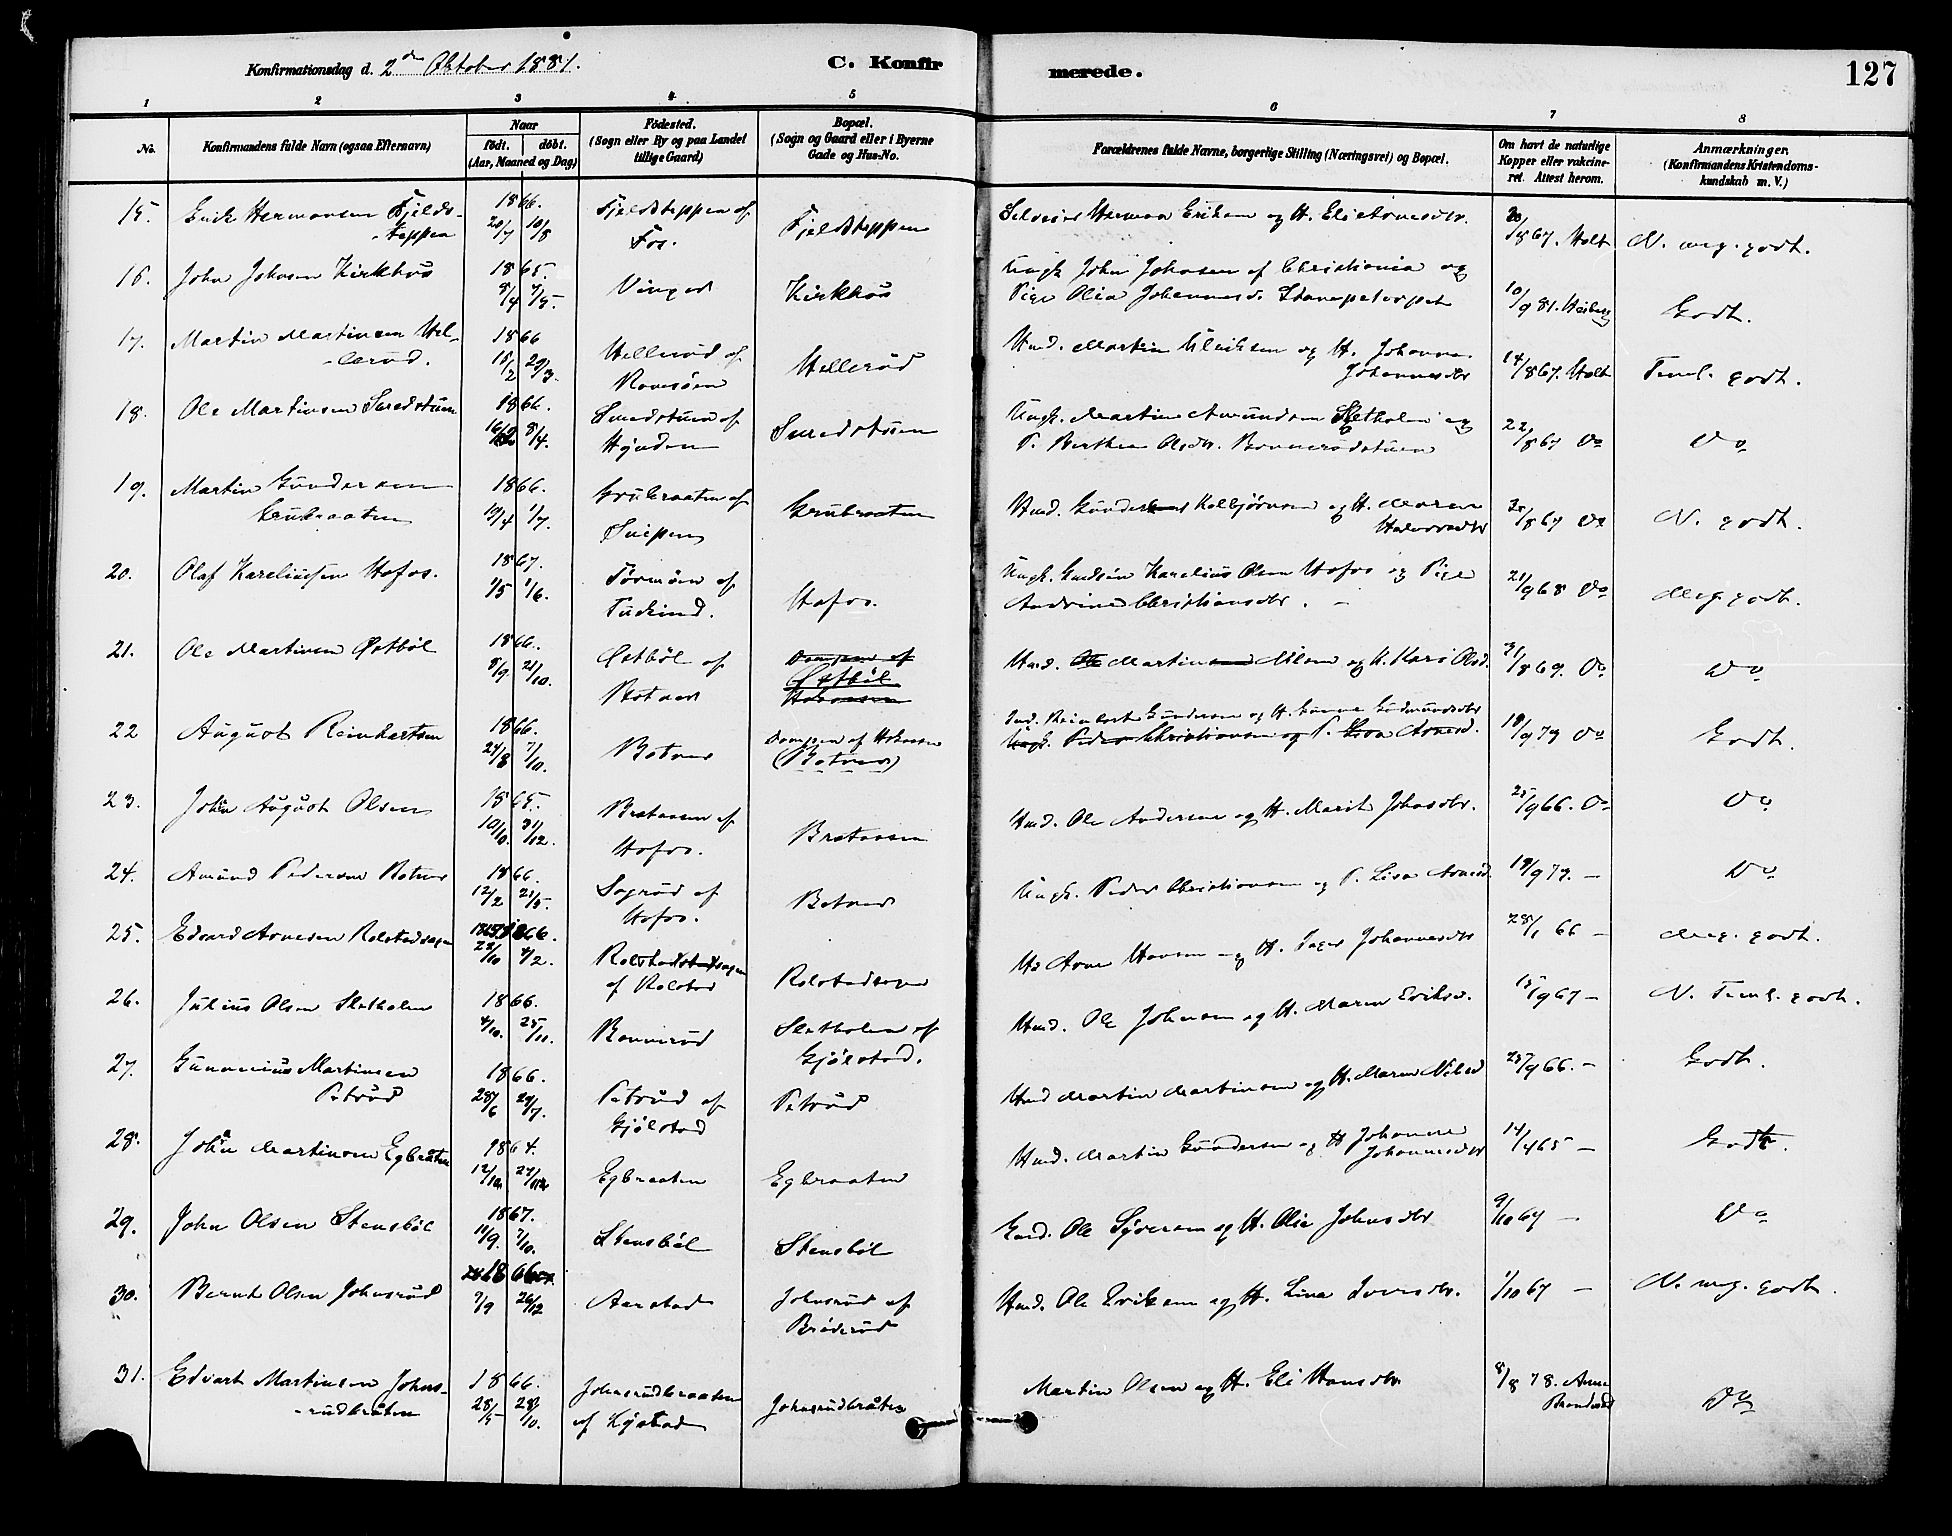 Konfirmationsdag d. 2den Oktober 1881. C. Konfirmerede. 127
1 2 3 4 5 6 7 8
No. Konfirmandens fulde Navn (ogsaa Efternavn) Naar født. døbt. (Aar, Maaned og Dag) Fødested. (Sogn eller By og paa Landet tillige Gaard) Bopæl. (Sogn og Gaard eller i Byerne Gade og Hus-No. Forældrenes fulde Navne, borgerlige Stilling (Næringsvei) og Bopæl. Om havt de naturlige Kopper eller vakcineret. Attest herom. Anmærkninger, (Konfirmandens Kristendomskundskab m. V.)
15. Erik Hermansen Fjeldsteppen 1866. 20/7 10/8 Fjeldsteppen af Fos. Fjeldsteppen Selveier Herman Eriksen og H. Eli Arnesdtr. /867. Holt N. meg. godt.
16. John Johnsen Kirkhus 1865. 8/4 7/5. Vinger Kirkhus Ungk. John Johnsen af Christiania og Pige Olia Johannesd. 10/9 81. Godt.
17. Martin Martinsen Hellerud. 1866 18/2 29/3. Hellerud af Hellerud Hmd. Martin Ulriksen og H. Johanne Johannesdtr 14/867. Holt Teml. godt.
18. Ole Martinsen Smedstuen 1866. 8/4. Smedstuen af Smedstuen Ungk. Martin Amundsen Sletholen og P. Berthea Olsdtr. 22/867 Do Do
19. Martin Gundersen Grubraaten 1866. 19/4 1/7. Grubraaten af Grubraaten Hmd. Gunder Kolbjørnsen og H. Maren Halvorsdtr /867 Do N. godt.
20. Olaf Kareliussen Hofos. 1867. 1/5 1/6. Hofos. Ungk. Karelius Olsen Hofos og Pige Andrine Christiansdtr. 21/968 Do Meg. godt.
21. Ole Martinsen Østbøl 1866. 8/9. 21/10. Østbøl af Botner Østbøl Hmd. Martin Nilsen og H. Kari Olsd. 31/869. Do Do
22 August Reinhartsen 1866. 24/8 7/10. Botner Dompen af (Botner) Ind. Reinhart Gundersen og H. Gudmundsdtr Ungk. Peder Christiansen og P. Lisa Arnesd. 18/979 Do Godt.
23. Johan August Olsen 1865. 10/10. 31/12. Brataasen af Hofos. Brataasen Hmd. Ole Andersen og H. Marit Johnsdtr. 25/966. Do Do
24. Amund Pedersen Botner 1866. 12/2 21/5. Sagrud af Hofos. Botner Ungk. Peder Christiansen og P. Lisa Arnesd. 18/979. — Do
25. Edvard Arnesen Rolstadsagen 1865 1866. 28/10 4/2. Rolstadsagen af Rolstad Rolstadsagen Hs Arne Hansen og H. Inger Johannesdtr 28/1 66 — Meg. godt.
26. Julius Olsen Sletholen 1866. 4/10. 25/11. Bonnerud Sletholen af Gjølstad. Hmd. Ole Johnsen og H. Maren Eriksd. 15/967 — N. Teml. godt.
27. Gunnerius Martinsen Petrud 1866. 28/6 29/7. Petrud af Gjølstad Petrud Hmd Martin Martinsen og H. Maren Nilsd 25/966. — Godt.
28. Johan Martinsen Egbraten 1864. 12/10 27/12 Egbraaten Egbraaten Hmd. Martin Gundersen og H Johanne Johannesdtr 14/465 — Godt.
29. John Olsen Stensbøl 1867. 11/9. 7/10. Stensbøl Stensbøl Gmd. Ole Syversen og H. Olia Johnsdtr 9/1067 — Do
30. Bernt Olsen Johnsrud 1866 7/9 26/12 Aarstad Johnsrud af Brøderud Hmd. Ole Eriksen og H. Lina Iversdtr. 1/1067 — N. meg. godt.
31. Edvart Martinsen Johnsrudbråten 1866. 28/5 28/10. Johnsrudbraaten af Johnsrudbråten Martin Olsen og H. Eli Hansdtr 8/8 78. Do